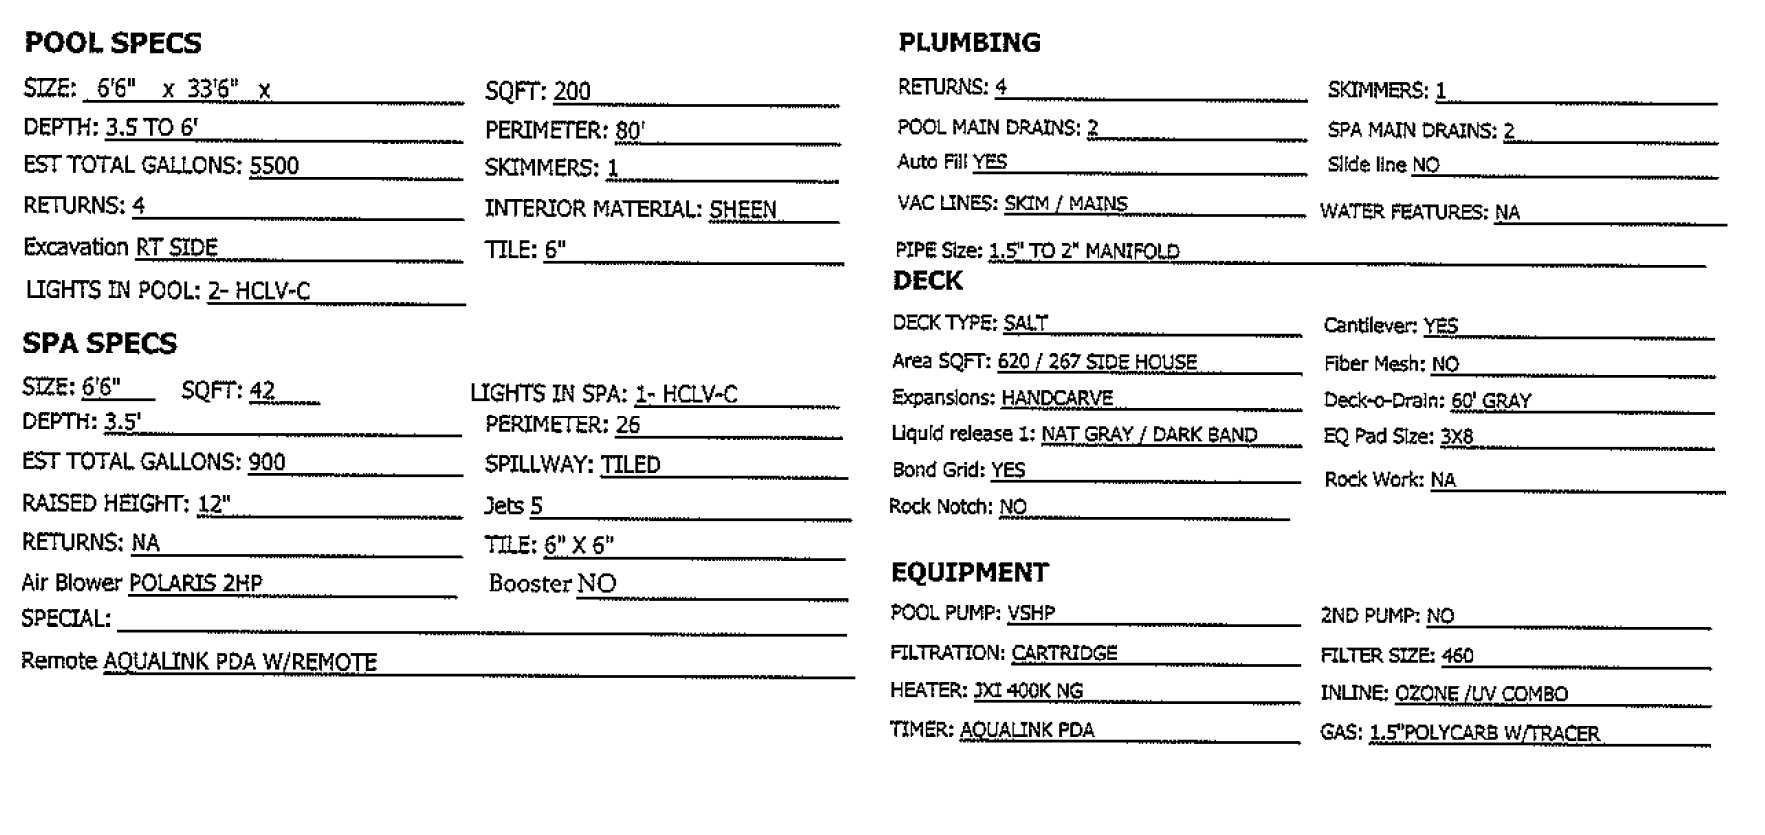 POOL SPECS
SIZE: 6'6" x 33'6" x
SQFT: 200
DEPTH: 3.5 TO 6'
PERIMETER: 80'
EST TOTAL GALLONS: 5500
SKIMMERS: 1
RETURNS: 4
INTERIOR MATERIAL: SHEEN
Excavation RT SIDE
TILE: 6"
LIGHTS IN POOL: 2- HCLV-C
SPA SPECS
SIZE: 6'6" SQFT: 42
LIGHTS IN SPA: 1- HCLV-C
DEPTH: 3.5'
PERIMETER: 26
EST TOTAL GALLONS: 900
SPILLWAY: TILED
RAISED HEIGHT: 12"
Jets 5
RETURNS: NA
TILE: 6" X 6"
Air Blower POLARIS 2HP
Booster NO
SPECIAL:
Remote AQUALINK PDA W/REMOTE
PLUMBING
RETURNS: 4
SKIMMERS: 1
POOL MAIN DRAINS: 2
SPA MAIN DRAINS: 2
Auto Fill YES
Slide line NO
VAC LINES: SKIM / MAINS
WATER FEATURES: NA
PIPE Size: 1.5" TO 2" MANIFOLD
DECK
DECK TYPE: SALT
Cantilever: YES
Area SQFT: 620 / 267 SIDE HOUSE
Fiber Mesh: NO
Expansions: HANDCARVE
Deck-o-Drain: 60' GRAY
Liquid release 1: NAT GRAY / DARK BAND
EQ Pad Size: 3X8
Bond Grid: YES
Rock Work: NA
Rock Notch: NO
EQUIPMENT
POOL PUMP: VSHP
2ND PUMP: NO
FILTRATION: CARTRIDGE
FILTER SIZE: 460
HEATER: JXI 400K NG
INLINE: OZONE /UV COMBO
TIMER: AQUALINK PDA
GAS: 1.5"POLYCARB W/TRACER